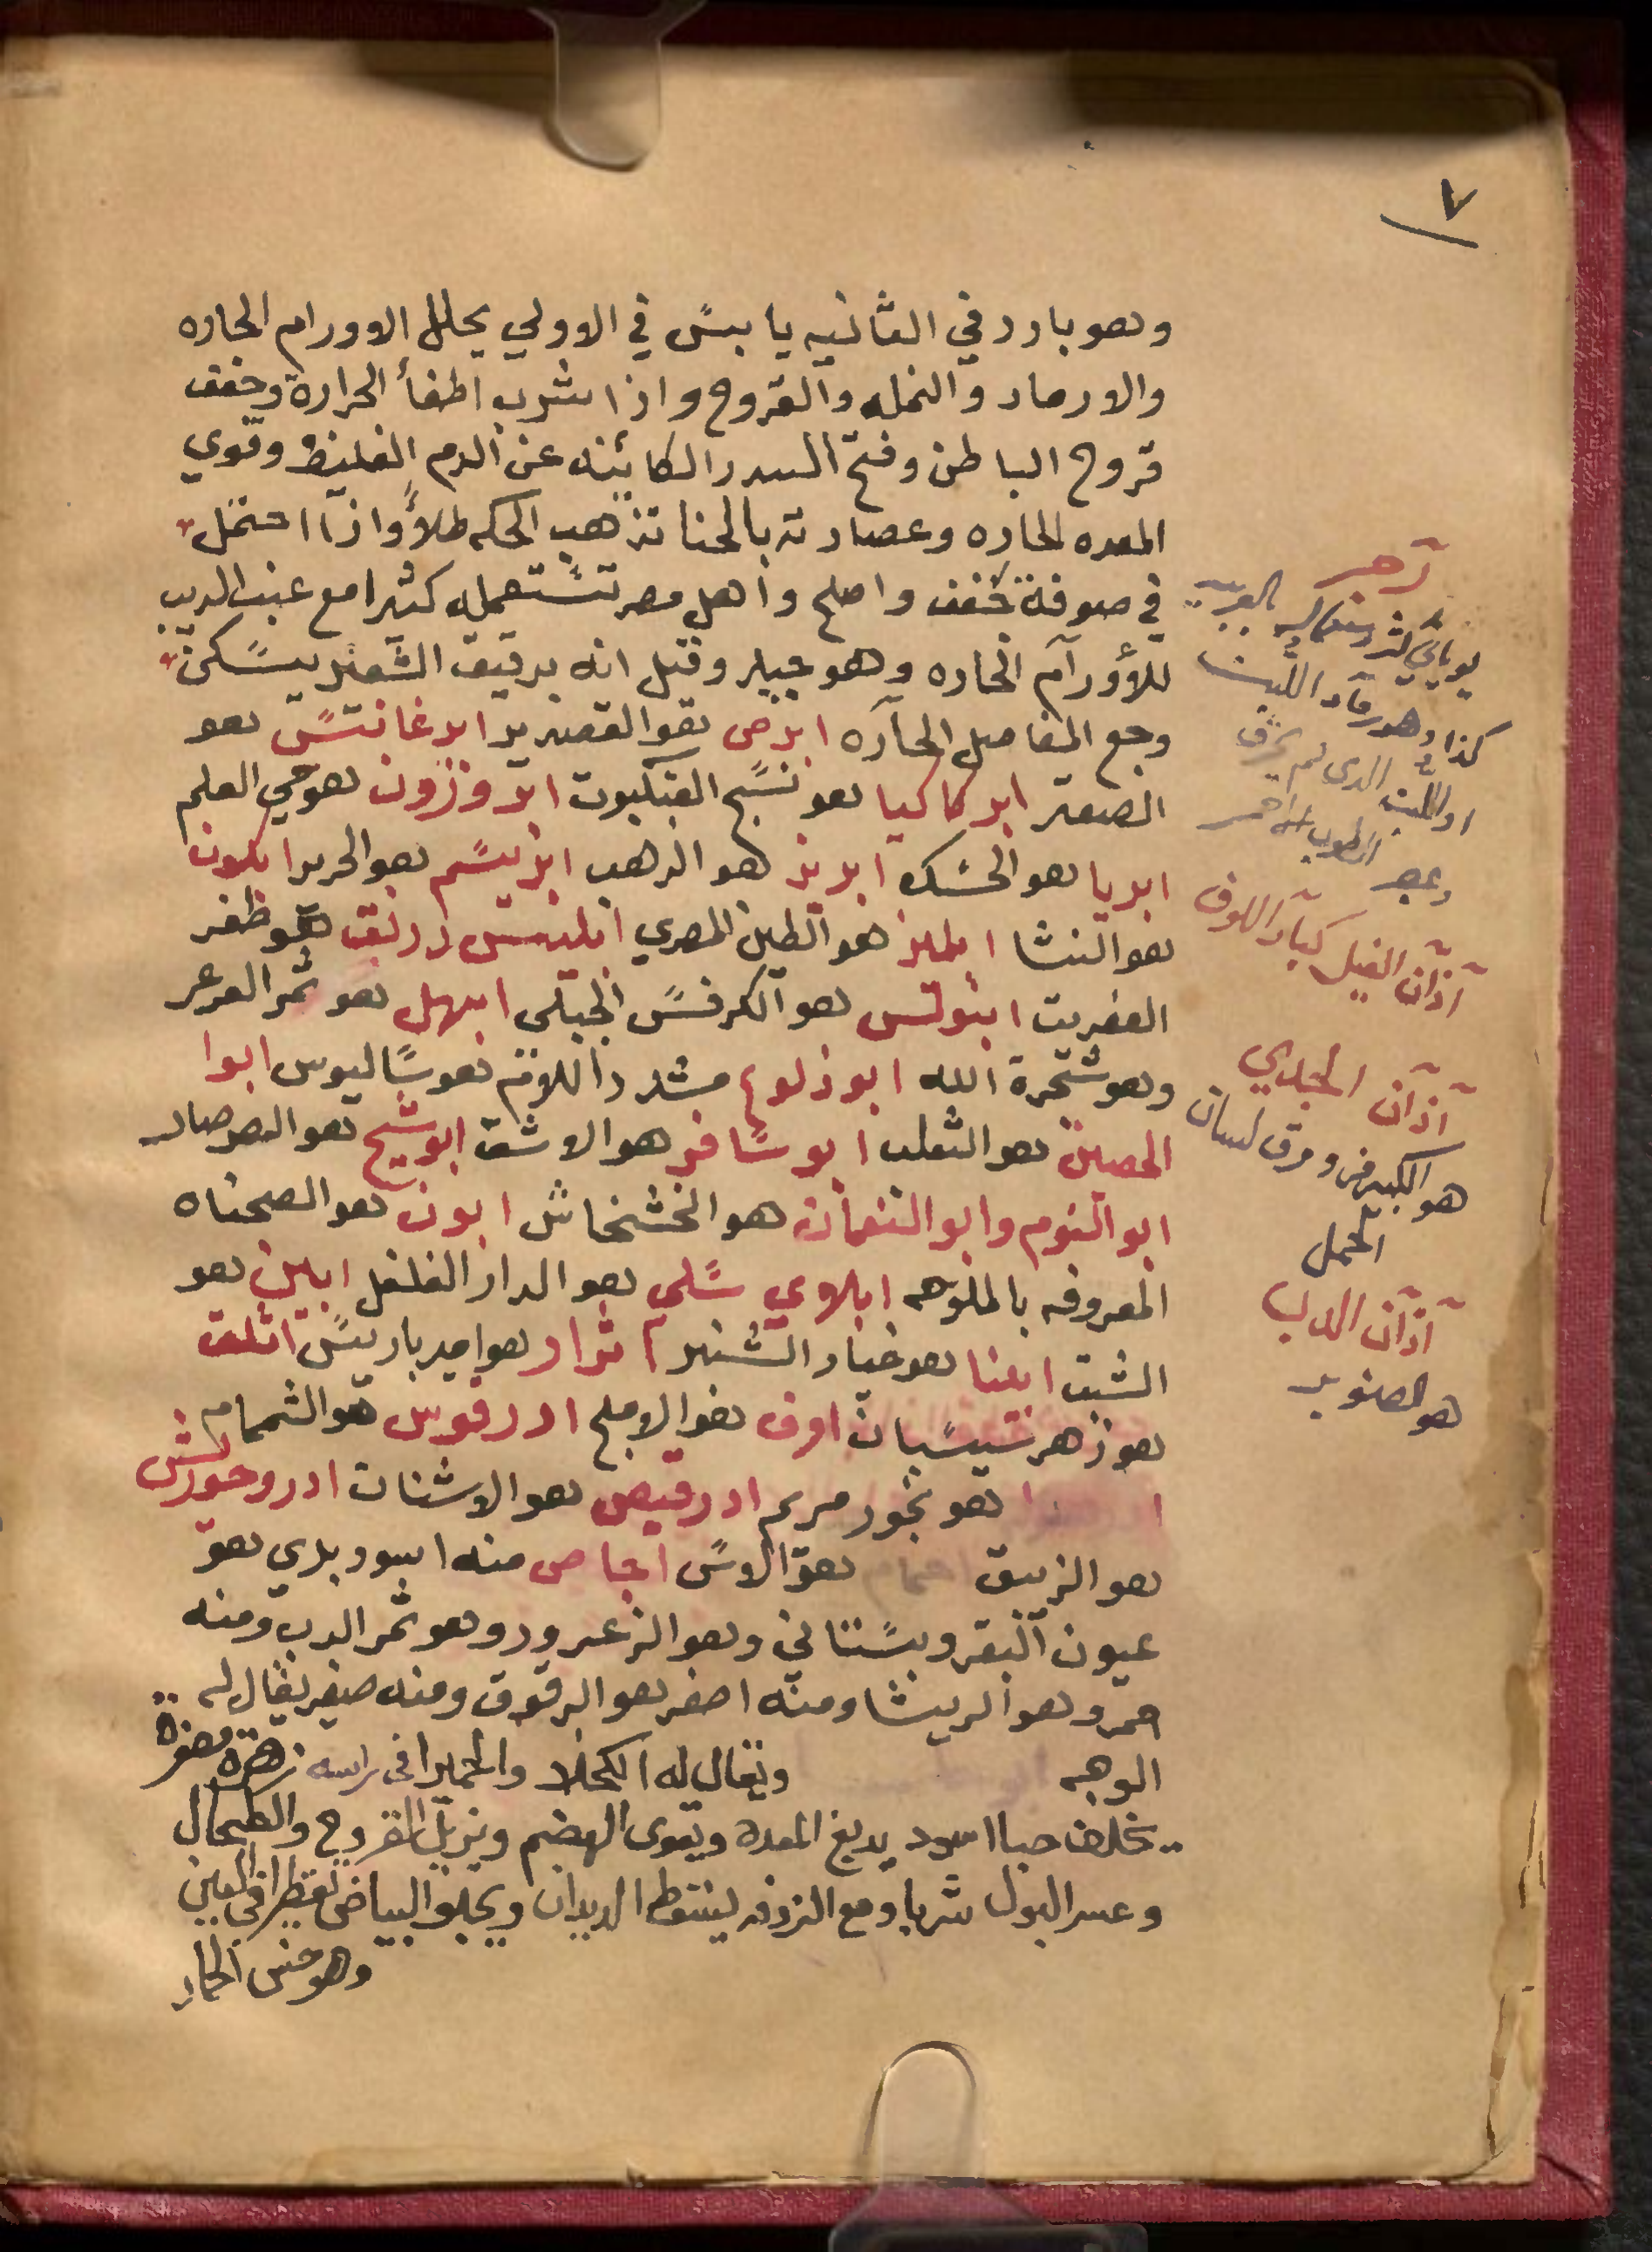 ٧
وهو بارد في الثانيه يابس في الاولي يحلل الاورام الحاره
والارماد والنمله والقروح واذا شرب اطفأ الحرارة وجفف
قروح الباطن وفتح السدد الكائنه عن الدم الغليظ وقوي
المعده الحاره وعصارته بالحنا تذهب الحكه طلاًُ واذا احتمل
في صوفة خفف واصلح واهل مصر تستعمله كثيرا مع عنب الديب
للأورام الحاره وهو جيد وقيل انه بدقيق الشعير يسكن
وجع المفاصل الحآره ابرص هو القصدير ابرغانتس هو
الصعتر ابركاكيا هو نسج العنكبوت ابروزون هو حي العلم
ابريا هو الحسك ابريز هو الذهب ابريسم هو الحرير ابلون
هو النشا ابليز هو الطين المصري ابليس هو ظفر
العفريت ابنوتس هو الكرفس الجبلي ابهل هو ثمر العرعر
وهو شجرة الله ابو ذلوع مشدد اللام هو ساليوس ابوا
الحصين هو الثعلب ابو سافر هو الاشق ابو شيح هو الصرصار
ابو النوم وابو النعمان هو الخشخاش ابون هو الصحناه
المعروفه بالملوحه ابلاوي شلي هو الدار الفلفل ابلين هو
الشبت ابينا هو خيار الشنبر اثرار هو امير باريس اثلق
هو زهر سيسبان ادرقوس هو الشمام
هو بخور مريم ادرقيص هو الاشنان ادروحورش
هو الزيبق هو الاس اجاص منه اسود بدي هو
عيون البقر وبستاني وهو الزعرور وهو ثمر الدب ومنه
احمر وهو الريشا ومنه اصفر هو البرقوق ومنه صغير يقال له
الوجهه ويقال له الكحلا والحميرا في راسه زهرة
يخلف حبا اسود يدبغ المعدة ويقوى الهضم ويزيل القروح والطحال
وعسر البول شربا ومع الزوفه ليسقط الديدان ويجلو البياض تقطيرا في العين
وهو خس الحمار
آجر
كذا وهو رماد اللبن
او اللبن الذي لم يحرق
آذان الفيل كبار اللوف
آذان الجدي
هو الكبير من ورق لسان
الحمل
آذان الدب
هو الصنوبر